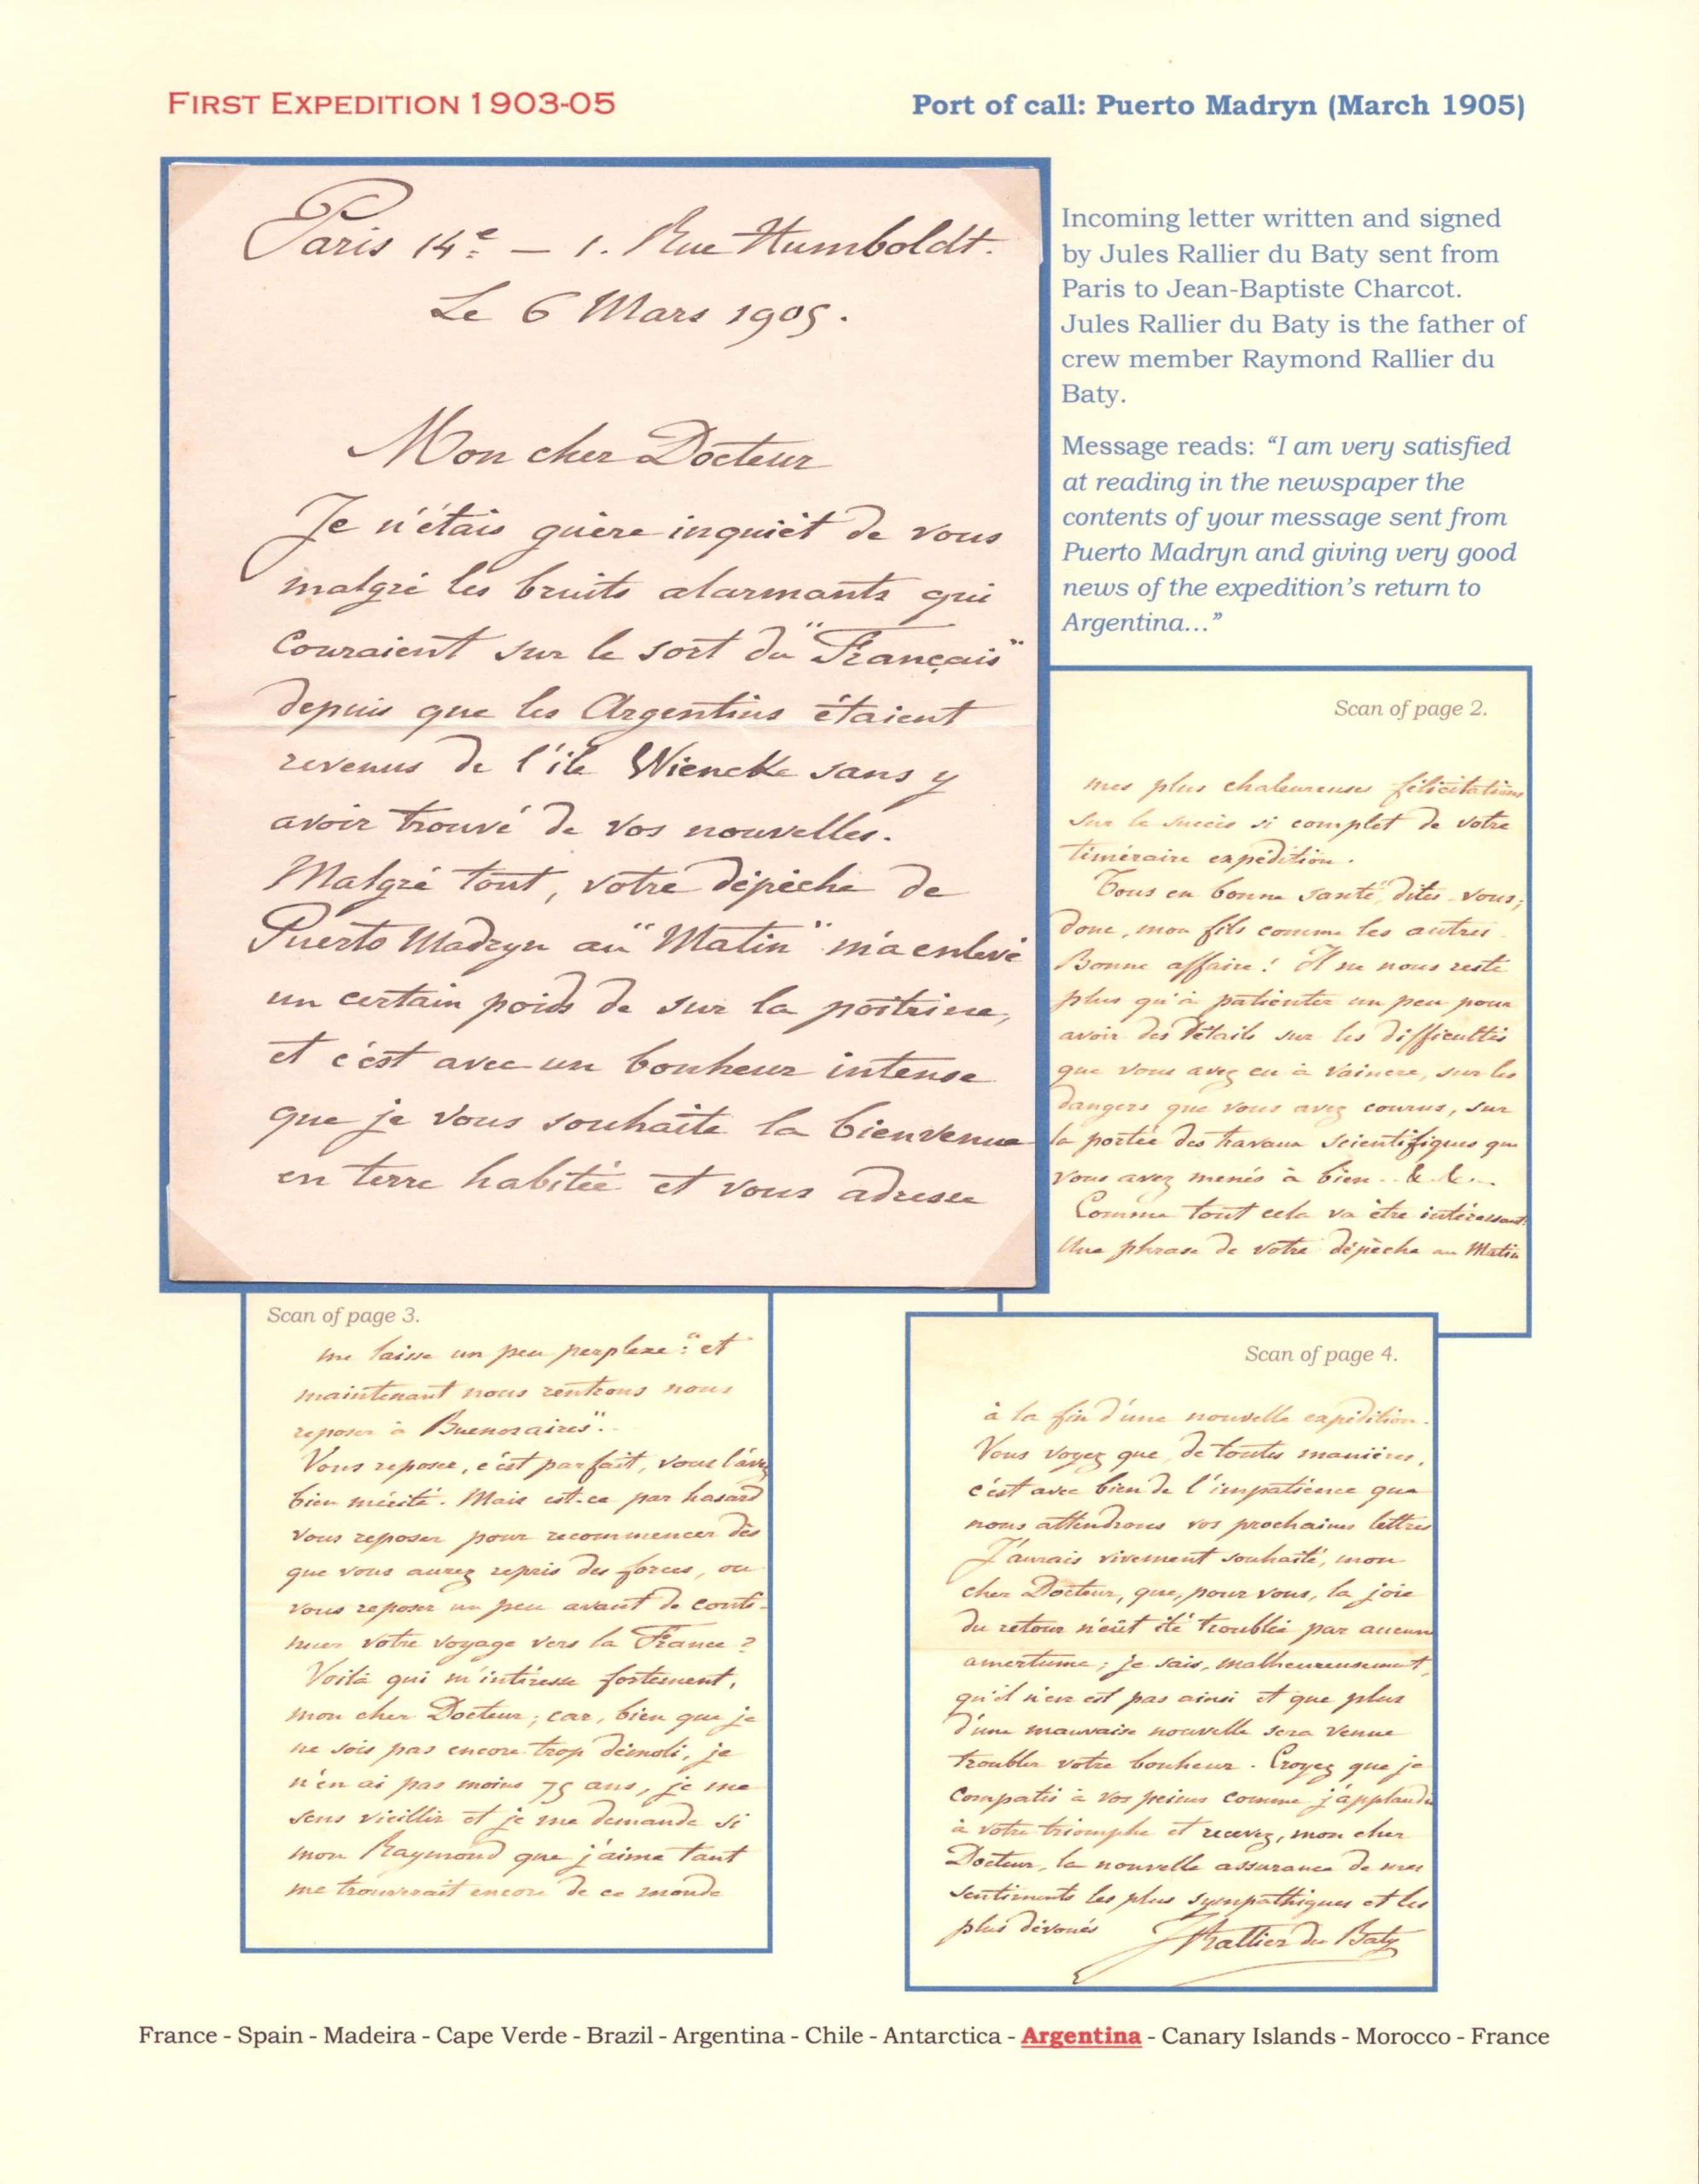 FIRST EXPEDITION 1903-05
Port of call: Puerto Madryn (March 1905)
Paris 14e — 1. Rue Humboldt.
Le 6 Mars 1905.
Mon cher Docteur
Je n'étais guère inquiet de vous
malgré les bruits alarmants qui
couraient sur le sort du "Français"
depuis que les Argentins étaient
revenus de l'île Wiencke sans y
avoir trouvé de vos nouvelles.
Malgré tout, votre dépêche de
Puerto Madryn au "Matin" m'a enlevé
un certain poids de sur la poitrine,
et c'est avec un bonheur intense
que je vous souhaite la bienvenue
en terre habitée et vous adresse
Incoming letter written and signed
by Jules Rallier du Baty sent from
Paris to Jean-Baptiste Charcot.
Jules Rallier du Baty is the father of
crew member Raymond Rallier du
Baty.
Message reads: “I am very satisfied
at reading in the newspaper the
contents of your message sent from
Puerto Madryn and giving very good
news of the expedition’s return to
Argentina…”
Scan of page 2.
mes plus chaleureuses félicitations
sur le succès si complet de votre
téméraire expédition.
Tous en bonne santé, dites-vous;
donc, mon fils comme les autres.
Bonne affaire! Il ne nous reste
plus qu'à patienter un peu pour
avoir des détails sur les difficultés
que vous avez eu à vaincre, sur les
dangers que vous avez courus, sur
la portée des travaux scientifiques que
vous avez menés à bien.. & &...
Comme tout cela va être intéressant!
Une phrase de votre dépêche au Matin
Scan of page 3.
me laisse un peu perplexe: "et
maintenant nous rentrons nous
reposer à Buenosaires".
Vous reposer, c'est parfait, vous l'avez
bien mérité. Mais est-ce par hasard
vous reposer pour recommencer dès
que vous aurez repris des forces, ou
vous reposer un peu avant de conti-
nuer votre voyage vers la France?
Voilà qui m'intéresse fortement,
mon cher Docteur; car, bien que je
ne sois pas encore trop démoli, je
n'en ai pas moins 75 ans, je me
sens vieillir et je me demande si
mon Raymond que j'aime tant
me trouverait encore de ce monde
Scan of page 4.
à la fin d'une nouvelle expédition.
Vous voyez que, de toutes manières,
c'est avec bien de l'impatience que
nous attendrons vos prochaines lettres
J'aurais vivement souhaité, mon
cher Docteur, que, pour vous, la joie
du retour n'eût été troublée par aucune
amertume; je sais, malheureusement,
qu'il n'en est pas ainsi et que plus
d'une mauvaise nouvelle sera venue
troubler votre bonheur. Croyez que je
compatis à vos peines comme j'applaudis
à votre triomphe et recevez, mon cher
Docteur, la nouvelle assurance de mes
sentiments les plus sympathiques et les
plus dévoués J Rallier du Baty
France - Spain - Madeira - Cape Verde - Brazil - Argentina - Chile - Antarctica - Argentina - Canary Islands - Morocco - France